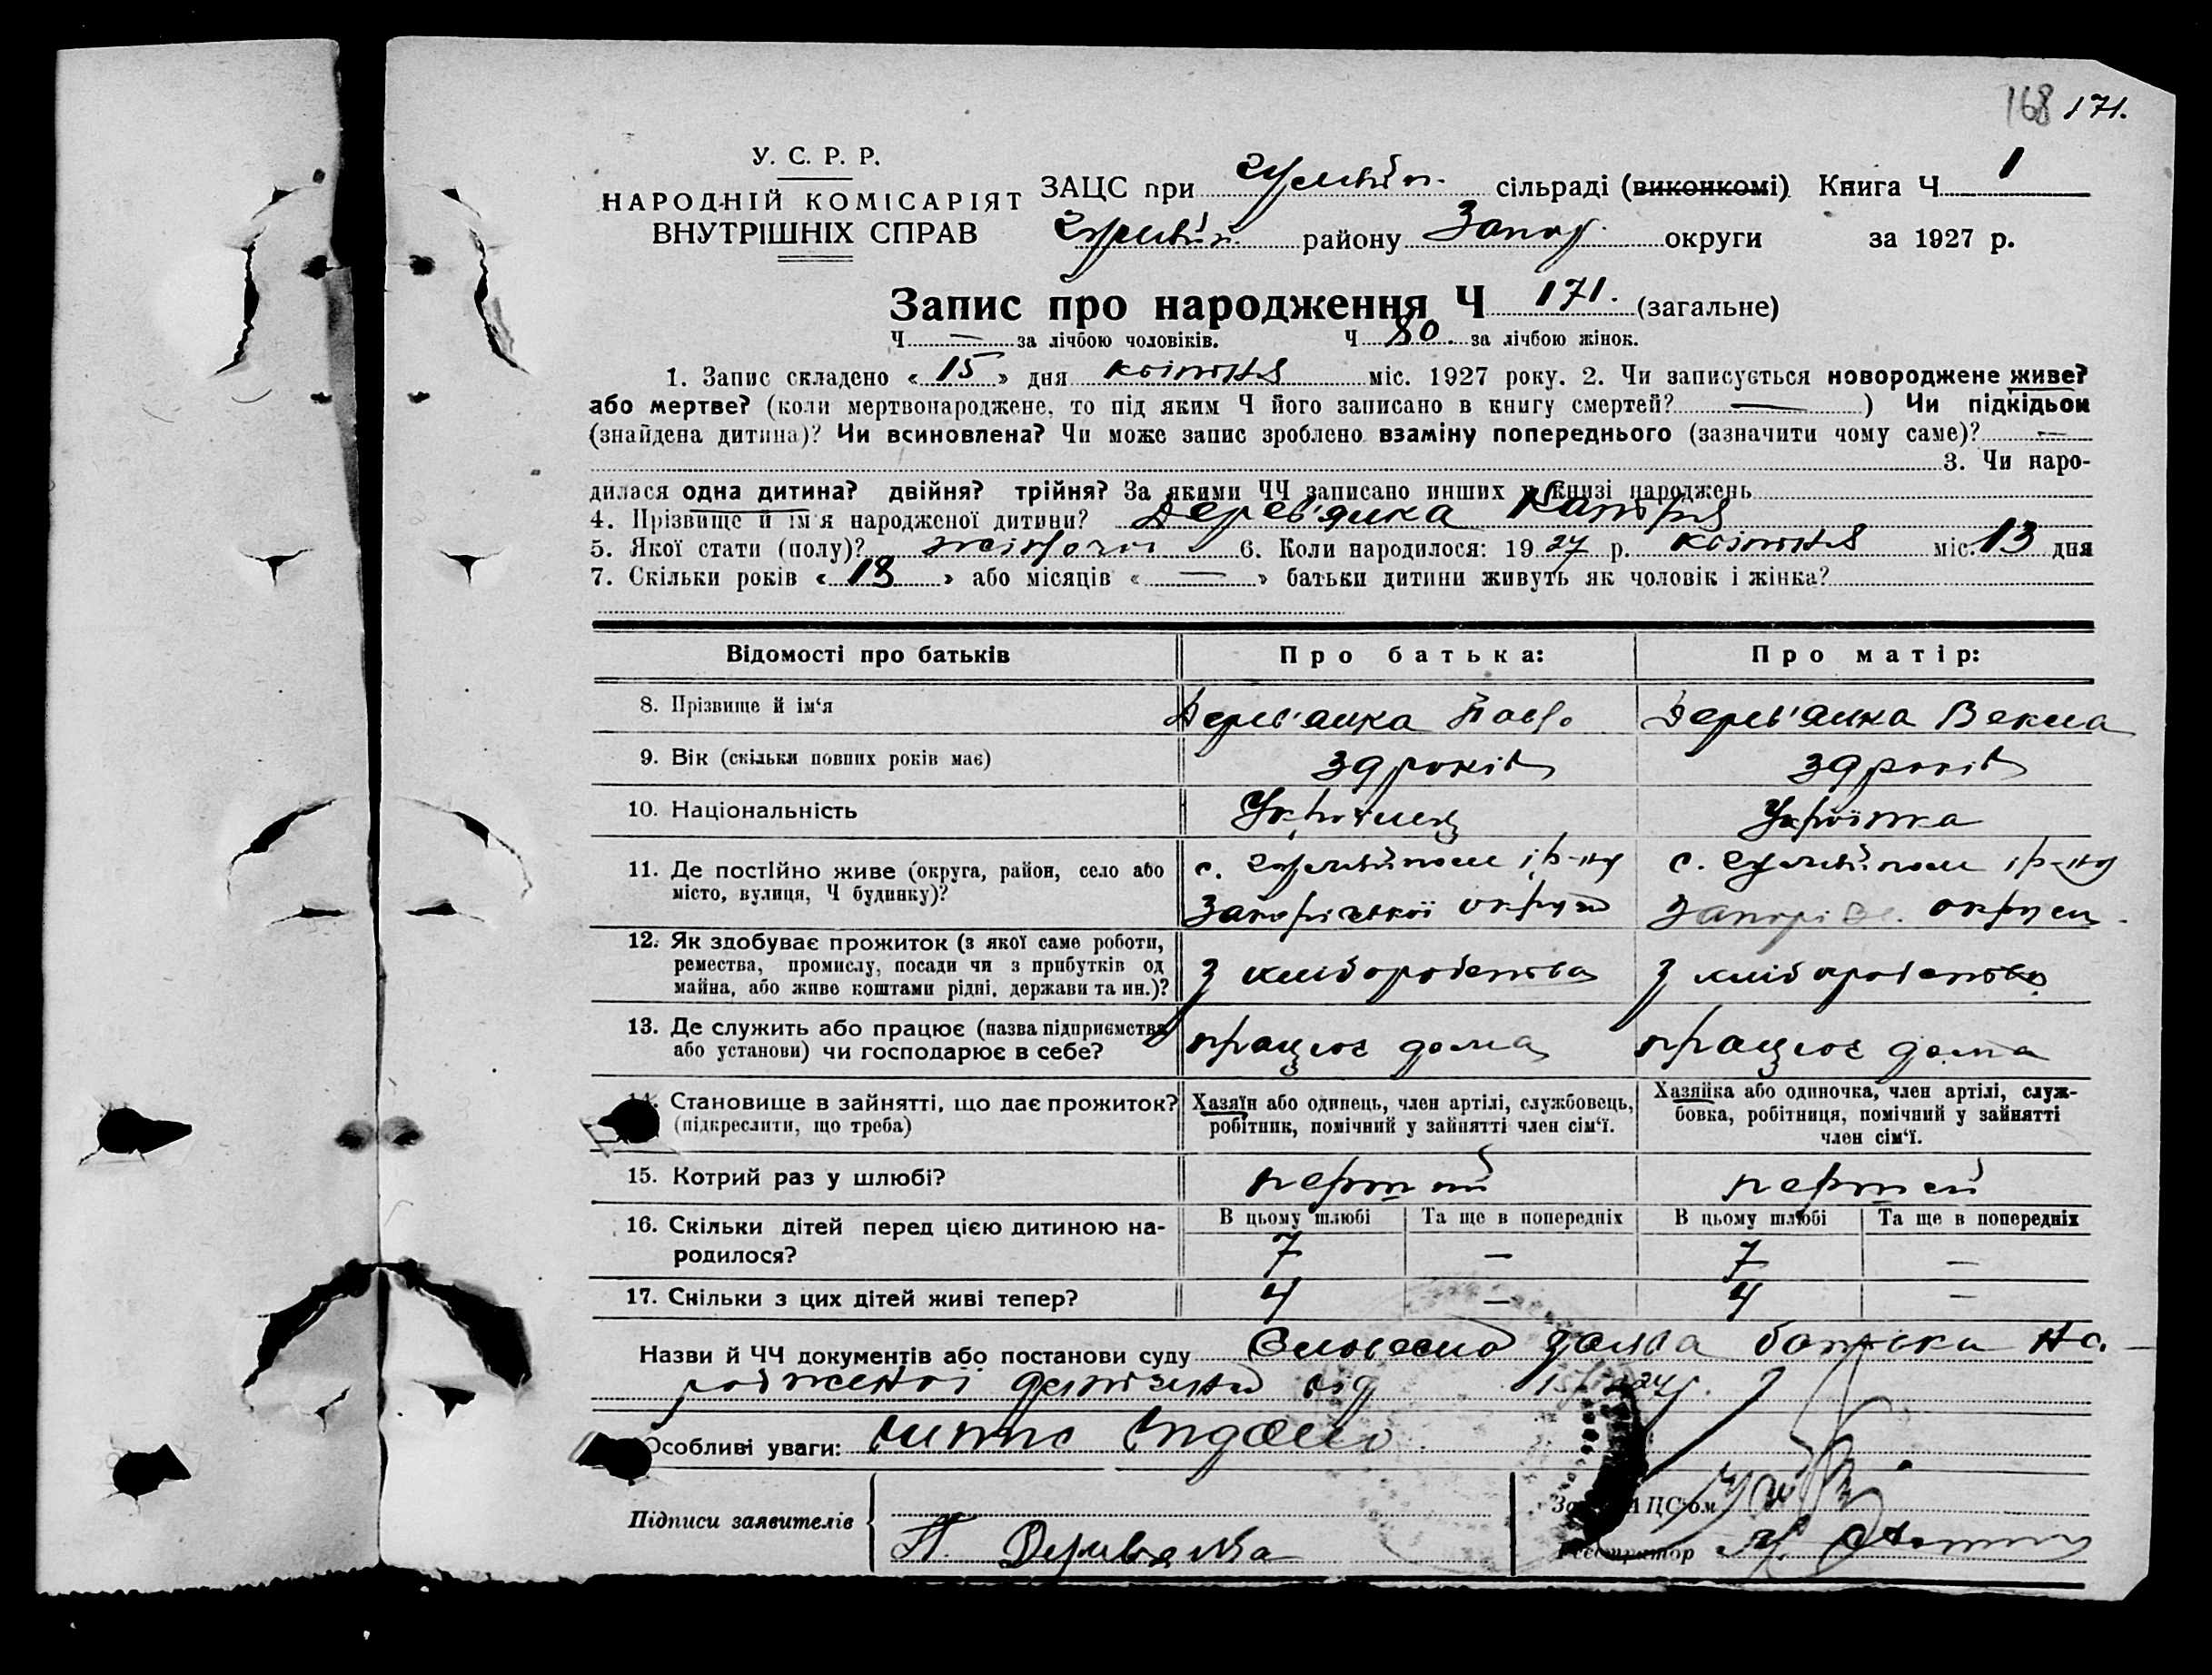 168 171.
У. С. Р. Р.
НАРОДНІЙ КОМІСАРІЯТ
ВНУТРІШНІХ СПРАВ
ЗАЦС при Гуляйп. сільраді (виконкомі) Книга Ч 1
Гуляйп. району Запор. округи за 1927 р.
Запис про народження Ч 171. (загальне)
Ч — за лічбою чоловіків. Ч 80. за лічбою жінок.
1. Запис складено « 15 » дня квітня міс. 1927 року. 2. Чи записується новороджене живе?
або мертве? (коли мертвонароджене, то під яким Ч його записано в книгу смертей? — ) Чи підкідьок
(знайдена дитина)? Чи всиновлена? Чи може запис зроблено взаміну попереднього (зазначити чому саме)? —
3. Чи наро-
дилася одна дитина? двійня? трійня? За якими ЧЧ записано инших у книзі народжень
4. Прізвище й ім'я народженої дитини? Дерев'янка
5. Якої стати (полу)? жіночої 6. Коли народилося: 19 27 р. квітня міс. 13 дня
7. Скільки років « 18 » або місяців « — » батьки дитини живуть як чоловік і жінка?
Відомості про батьків Про батька: Про матір:
8. Прізвище й ім'я Дерев'янка Павло Дерев'янка Векла
9. Вік (скільки повних років має) 39 років 39 років
10. Національність Українец Українка
11. Де постійно живе (округа, район, село або с. Гуляйполе і р-ну с. Гуляйполе і р-ну
місто, вулиця, Ч будинку)? Запорізької округи округи
12. Як здобуває прожиток (з якої саме роботи,
ремества, промислу, посади чи з прибутків од З хліборобства З хліборобства
майна, або живе коштами рідні, держави та ин.)?
13. Де служить або працює (назва підприємства
або установи) чи господарює в себе? працює дома працює дома
14. Становище в зайнятті, що дає прожиток? Хазяїн або одинець, член артілі, службовець, Хазяйка або одиночка, член артілі, служ-
(підкреслити, що треба) робітник, помічний у зайнятті член сім'ї. бовка, робітниця, помічний у зайнятті
член сім'ї.
15. Котрий раз у шлюбі? первий первий
16. Скільки дітей перед цією дитиною на- В цьому шлюбі Та ще в попередніх В цьому шлюбі Та ще в попередніх
родилося? 7 — 7 —
17. Скільки з цих дітей живі тепер? 4 — 4 —
Назви й ЧЧ документів або постанови суду Словесна заява батька на-
родженої від
Особливі уваги:
Підписи заявителів П. Деревянка
Реєстратор